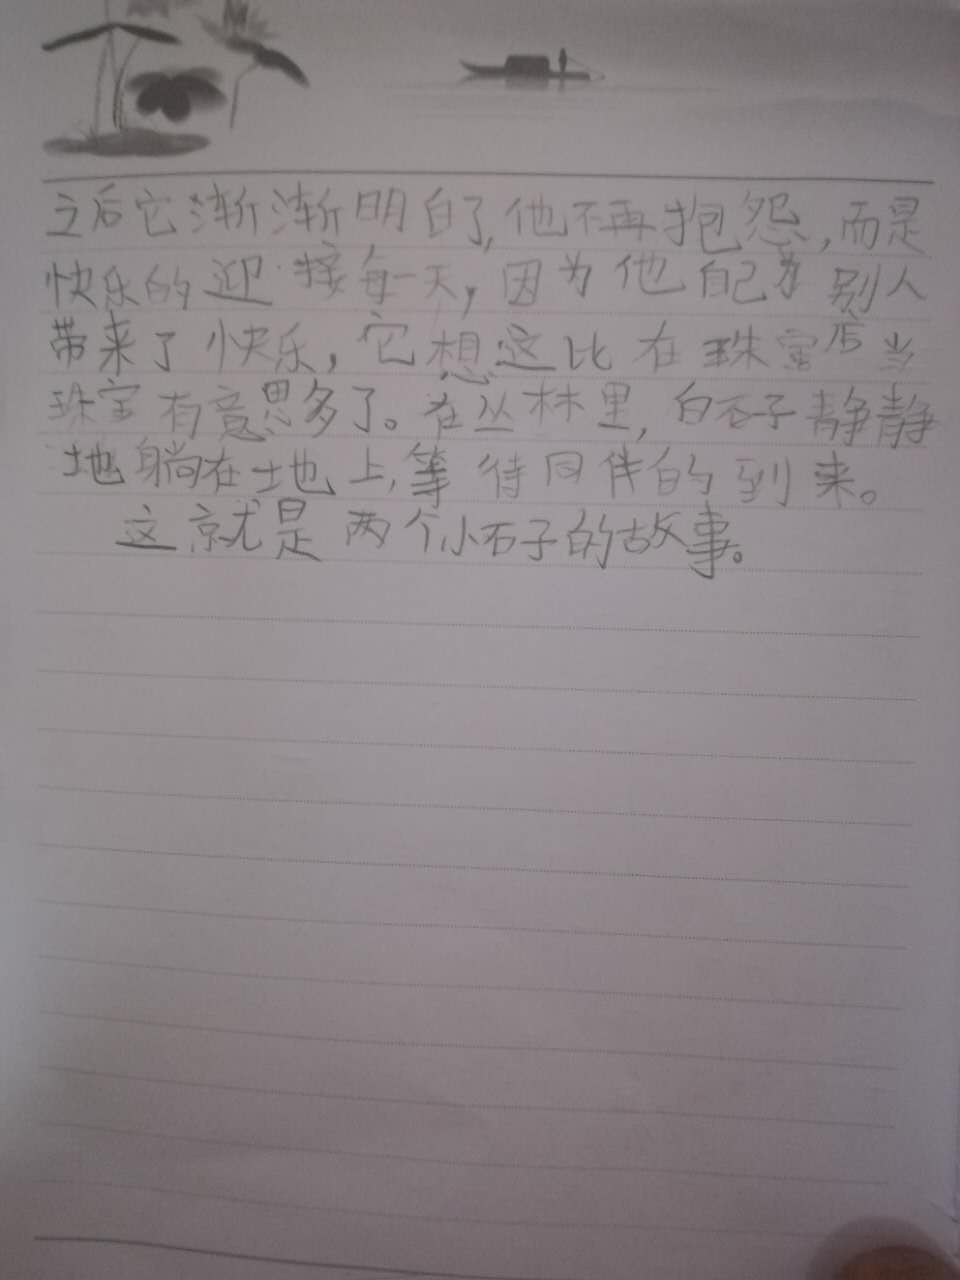 之后它渐渐明白了,他不再抱怨,而是
快乐的迎接每一天,因为他自己为别人
带来了快乐,它想这比在珠宝店当
珠宝有意思多了。在丛林里,白石子静静
地躺在土地上,等待同伴的到来。
这就是两个小石子的故事。